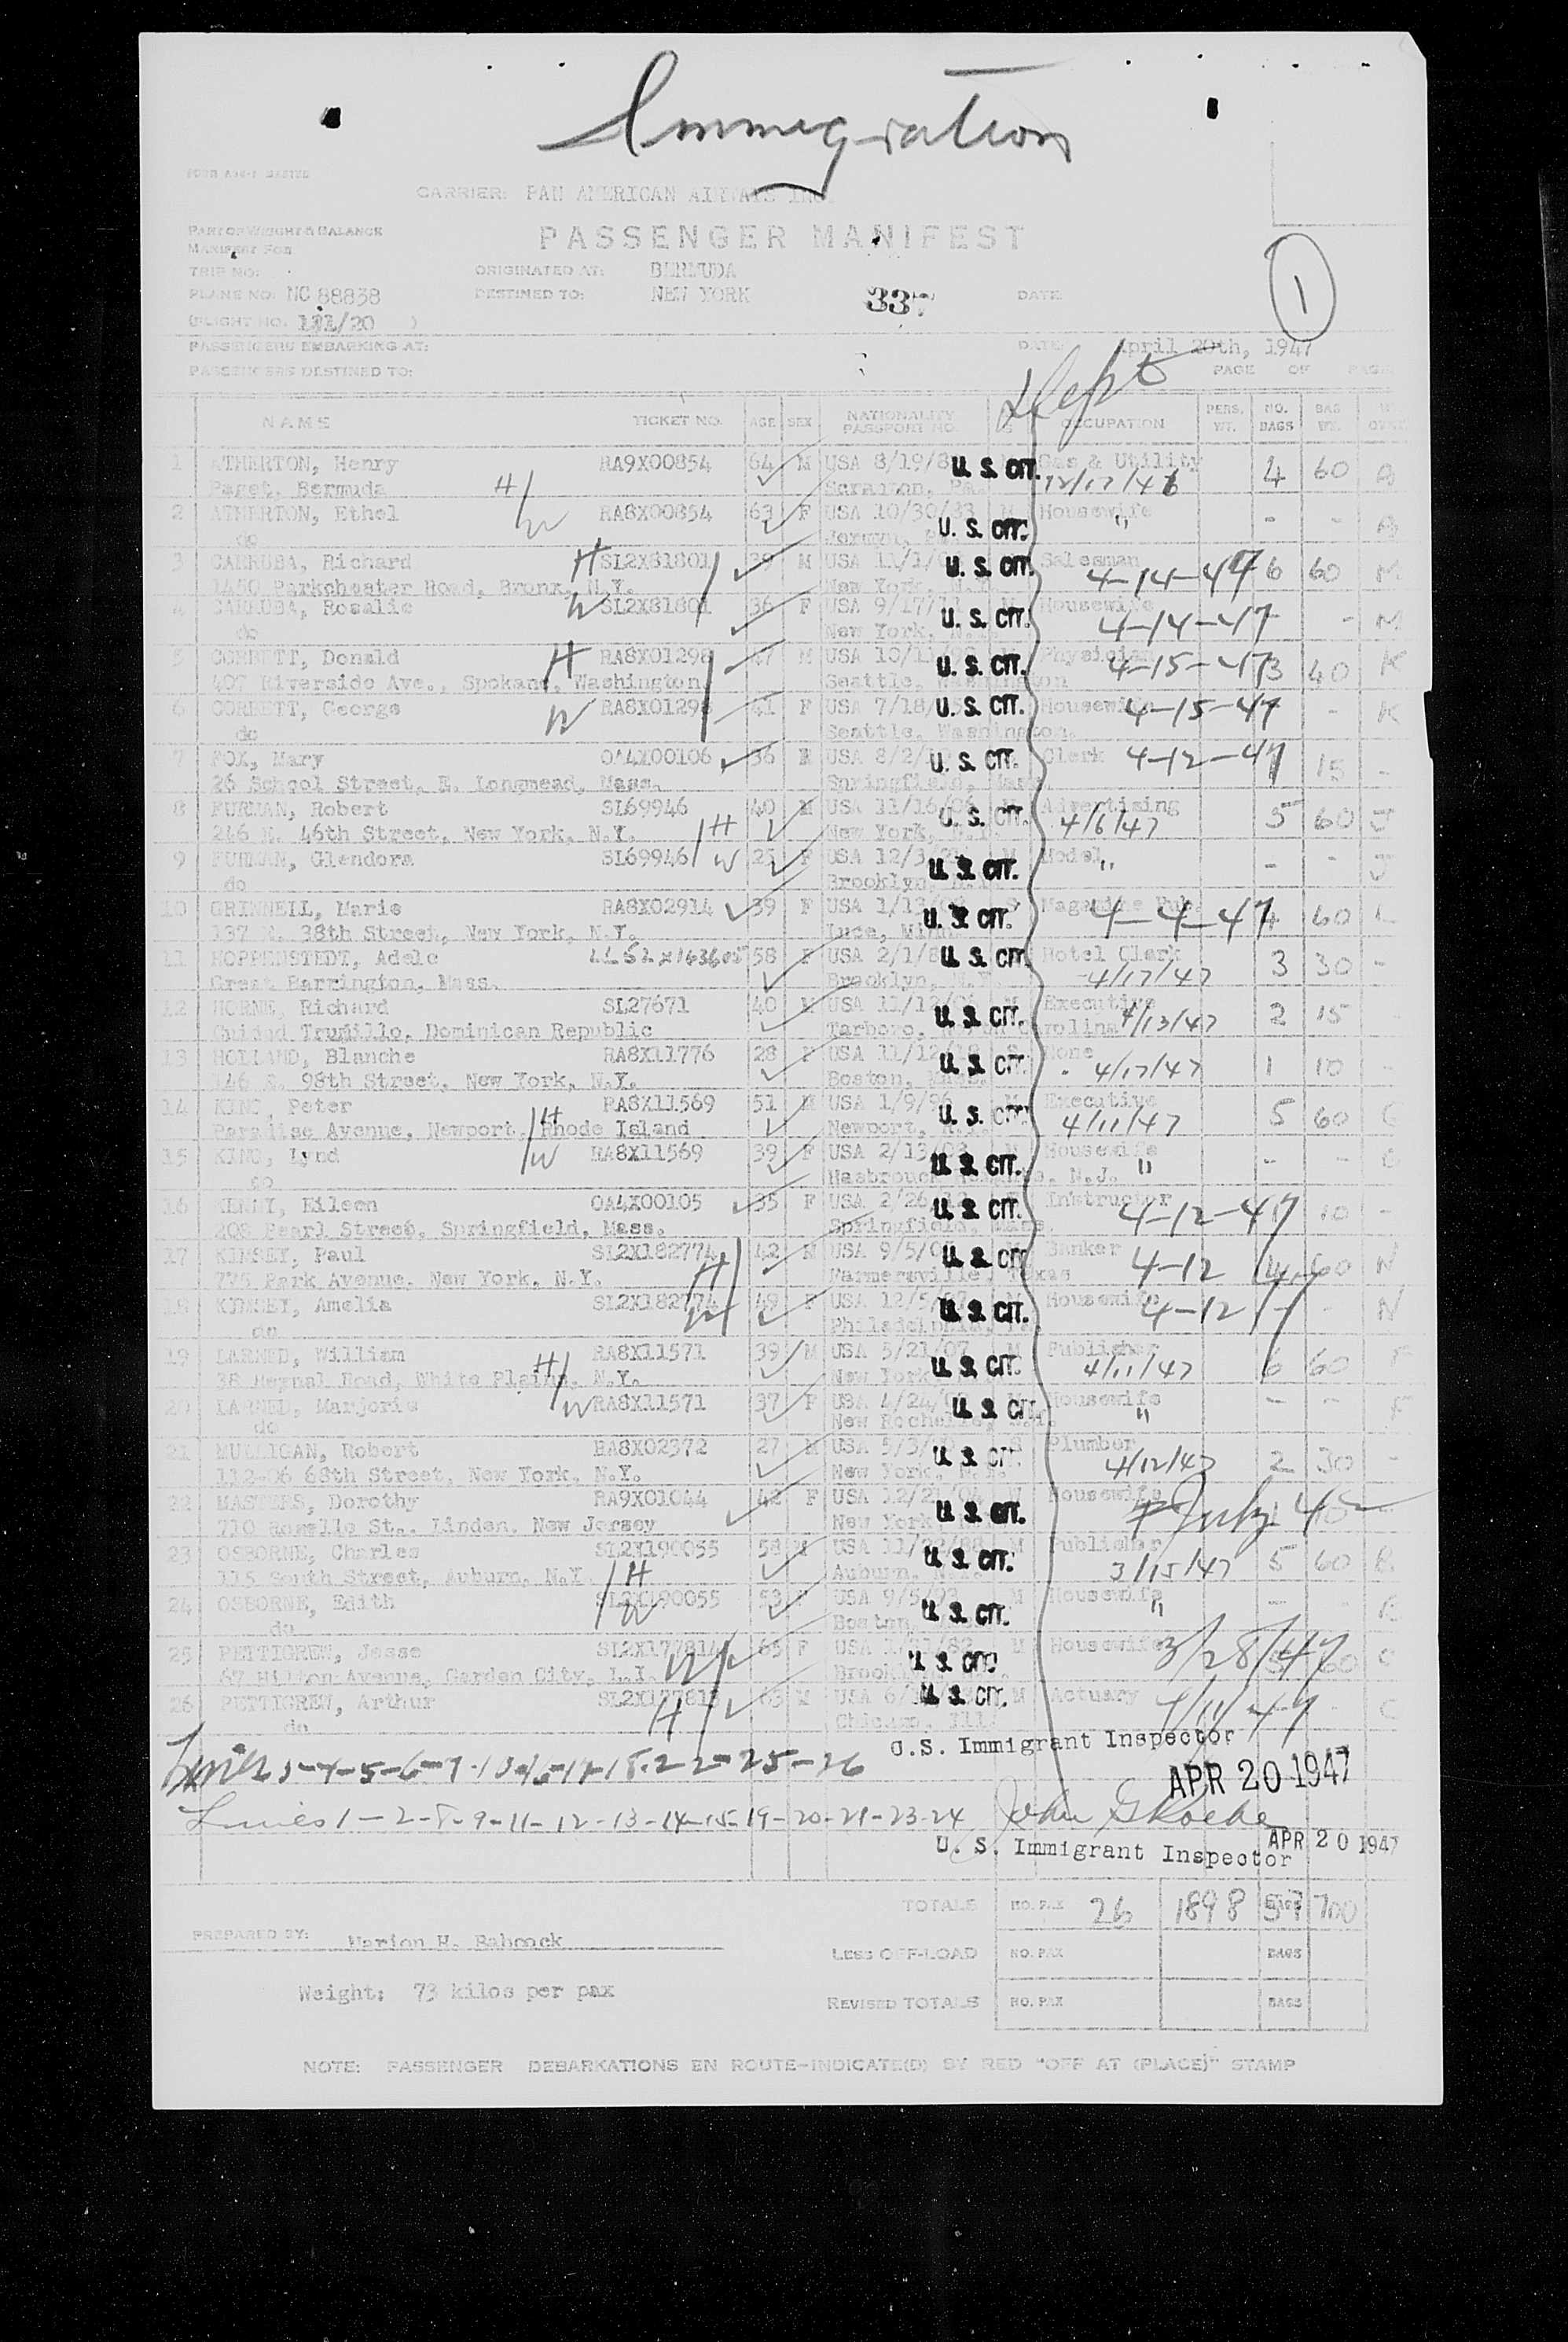 Immigration
CARRIER: PAN AMERICAN AIRWAYS INC.
PART OF WEIGHT & BALANCE
MANIFEST FOR
PASSENGER MANIFEST
1
TRIP NO:
ORIGINATED AT: BERMUDA
PLANE NO: NC 88838
DESTINED TO: NEW YORK
337
DATE
(FLIGHT NO. 121/20 )
PASSENGERS EMBARKING AT:
DATE April 20th, 1947
PASSENGERS DESTINED TO:
PAGE OF PAGE
Dept
NAME TICKET NO. AGE SEX NATIONALITY PASSPORT NO. OCCUPATION PERS. WT. NO. BAGS BAG WT.
1 ATHERTON, Henry RA9X00854 64 M USA 8/19/8 U. S. CIT. Gas & Utility 4 60
Paget, Bermuda H Scranton, Pa. 12/17/46
2 ATHERTON, Ethel W RA8X00854 63 F USA 10/30/83 U. S. CIT. Housewife " - -
do
3 CARRUBA, Richard H SL2X81801 39 M USA 11/1/ U. S. CIT. Salesman 4-14-47 6 60 M
1480 Parkchester Road, Bronx, N.Y. New York, N.Y.
4 CARRUBA, Rosalie W SL2X81801 36 F USA 9/17/ U. S. CIT. Housewife 4-14-47 - M
do New York, N.Y.
5 CORBETT, Donald H RA8X01298 47 M USA 10/11/ U. S. CIT. Physician 4-15-47 3 40 K
407 Riverside Ave., Spokane, Washington Seattle, Washington
6 CORBETT, George W RA8X01298 41 F USA 7/18/ U. S. CIT. Housewife 4-15-47 - K
do Seattle, Washington.
7 FOX, Mary OA4X00106 36 F USA 8/2/ U. S. CIT. Clerk 4-12-47 15 -
26 School Street, E. Longmead, Mass. Springfield, Mass.
8 FURMAN, Robert SL69946 40 M USA 11/16/06 U. S. CIT. Advertising 5 60 J
246 E. 46th Street, New York, N.Y. H New York, N.Y. 4/6/47
9 FURMAN, Glendora SL69946 W F USA 12/3/ U. S. CIT. Model " - - J
do Brooklyn, N.Y.
10 GRINNELL, Marie RA8X02914 39 F USA 1/13/ U. S. CIT. Magazine Pub. 4-4-47 60 L
137 E. 38th Street, New York, N.Y. Luce, Minn.
11 HOPPENSTEDT, Adele 58 F USA 2/1/8 U. S. CIT. Hotel Clerk 3 30 -
Great Barrington, Mass. Brooklyn, N.Y. 4/17/47
12 HORNE, Richard SL27671 40 M USA 11/12/06 U. S. CIT. Executive 2 15
Cuidad Trujillo, Dominican Republic Tarboro, North Carolina 4/13/47
13 HOLLAND, Blanche RA8X11776 28 F USA 11/12/18 U. S. CIT. None 1 10 -
146 E. 98th Street, New York, N.Y. Boston, Mass. 4/17/47
14 KING, Peter RA8X11569 51 M USA 1/9/96 U. S. CIT. Executive 5 60
Paradise Avenue, Newport, Rhode Island H Newport, 4/11/47
15 KING, Lynd W RA8X11569 39 F USA 2/13/ U. S. CIT. Housewife " - -
do Hasbrouck Heights, N.J.
16 KENNY, Eileen OA4X00105 35 F USA 2/26/12 U. S. CIT. Instructor 4-12-47 10 -
208 Pearl Street, Springfield, Mass. Springfield, Mass.
17 KIMSEY, Paul SL2X182774 42 M USA 9/5/ U. S. CIT. Banker 4-12 60 N
775 Park Avenue, New York, N.Y. H Farmersville, Texas
18 KIMSEY, Amelia W SL2X182774 49 F USA 12/5/97 U. S. CIT. Housewife 4-12 - N
do Philadelphia, Pa.
19 LARNED, William RA8X11571 39 M USA 5/21/07 U. S. CIT. Publisher 6 60 F
38 Haynal Road, White Plains, N.Y. H New York 4/11/47
20 LARNED, Marjorie W RA8X11571 37 F USA 4/24/ U. S. CIT. Housewife " - - F
do New Rochelle, N.Y.
21 MULLIGAN, Robert RA8X02372 27 M USA 5/3/ U. S. CIT. Plumber 2 30 -
112-06 68th Street, New York, N.Y. New York, N.Y. 4/12/47
22 MASTERS, Dorothy RA9X01044 42 F USA 12/21/04 U. S. CIT. Housewife July
710 Roselle St., Linden, New Jersey New York
23 OSBORNE, Charles SL2X190055 58 M USA 11/22/88 M U. S. CIT. Publisher 5 60 B
115 South Street, Auburn, N.Y. H Auburn, N.Y. 3/15/47
24 OSBORNE, Edith W SL2X190055 53 F USA 9/5/93 M U. S. CIT. Housewife " - B
do Boston
25 PETTIGREW, Jesse SL2X177814 65 F USA M U. S. CIT. Housewife 3/28/47 60 C
67 Hilton Avenue, Garden City, L.I. W Brooklyn
26 PETTIGREW, Arthur SL2X177813 63 M USA 6/ M U. S. CIT. Actuary 4/11/47 C
do H Chicago, Ill.
U.S. Immigrant Inspector
APR 20 1947
Lines 1-2-8-9-11-12-13-14-15-19-20-21-23-24
U. S. Immigrant Inspector APR 20 1947
TOTALS NO. PAX 26 1898 57 700
PREPARED BY: Marion H. Babcock
LESS OFF-LOAD NO. PAX BAGS
Weight: 73 kilos per pax
REVISED TOTALS NO. PAX BAGS
NOTE: PASSENGER DEBARKATIONS EN ROUTE-INDICATE(D) BY RED "OFF AT (PLACE)" STAMP